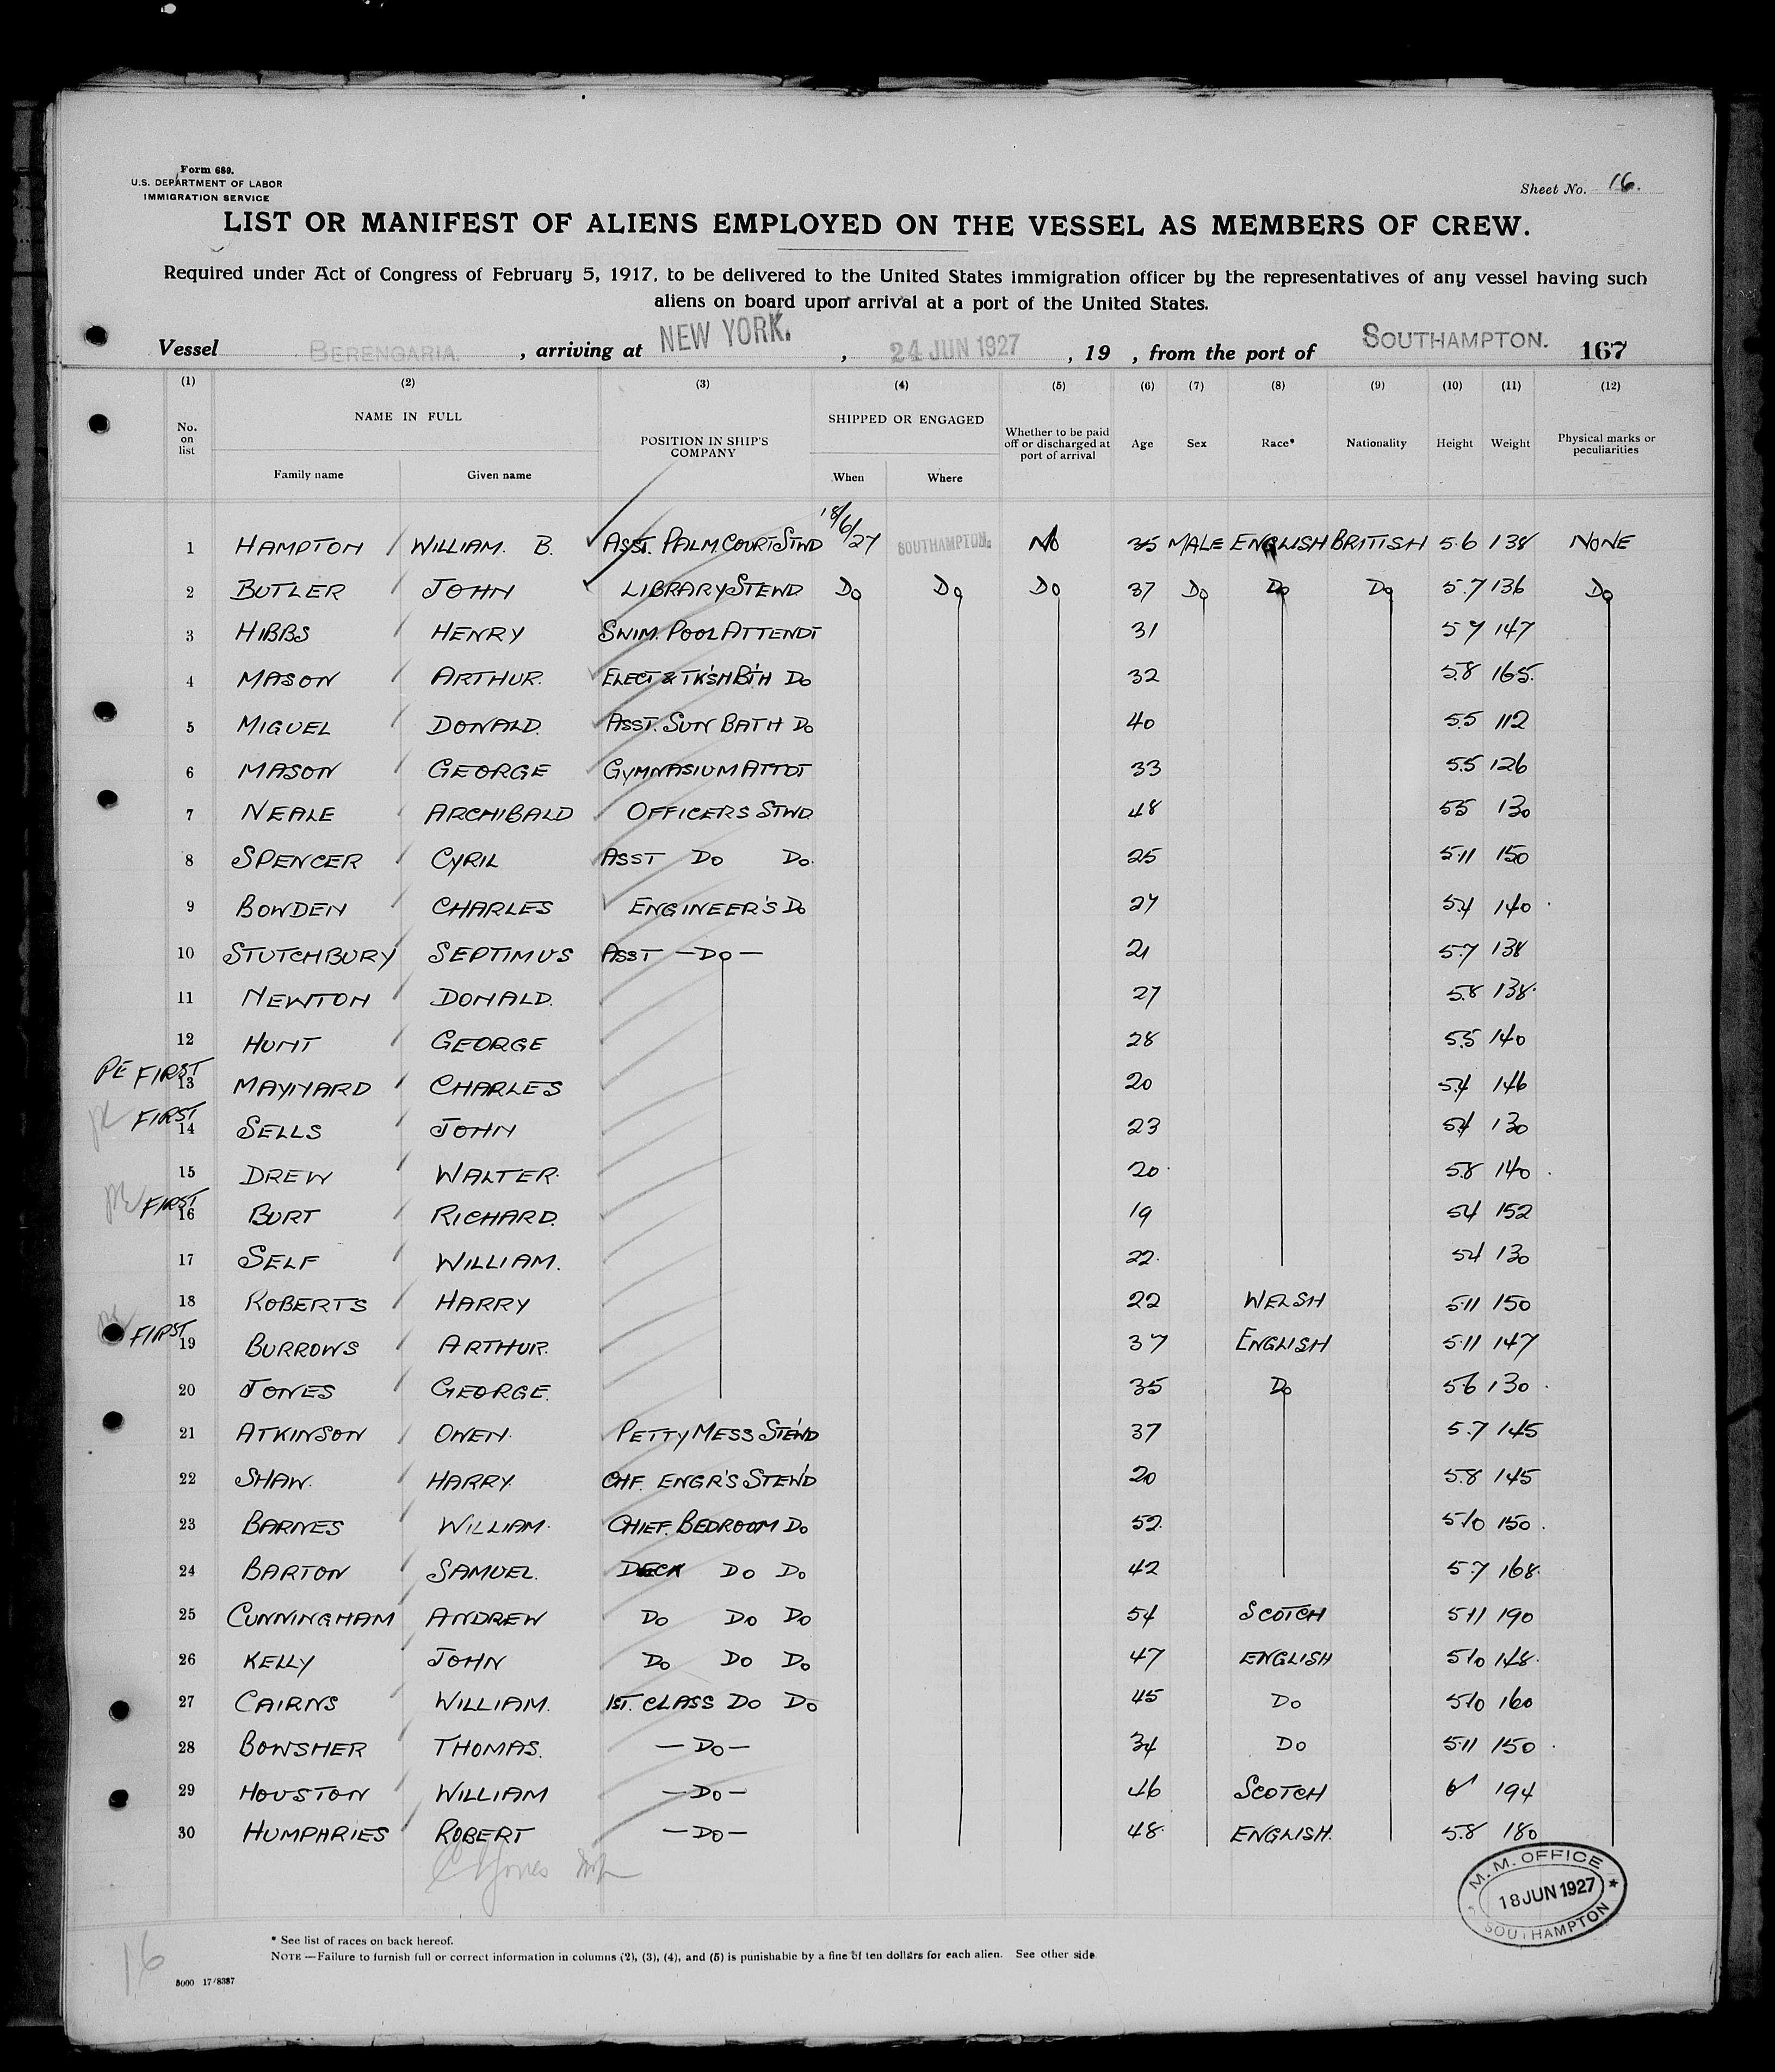 Form 689.
U.S. DEPARTMENT OF LABOR
IMMIGRATION SERVICE
Sheet No. 16.
LIST OR MANIFEST OF ALIENS EMPLOYED ON THE VESSEL AS MEMBERS OF CREW.
Required under Act of Congress of February 5, 1917, to be delivered to the United States immigration officer by the representatives of any vessel having such
aliens on board upon arrival at a port of the United States.
Vessel BERENGARIA. , arriving at NEW YORK. , 24 JUN 1927 , 19 , from the port of SOUTHAMPTON. 167
(1) (2) (3) (4) (5) (6) (7) (8) (9) (10) (11) (12)
No. on list NAME IN FULL POSITION IN SHIP'S COMPANY SHIPPED OR ENGAGED Whether to be paid off or discharged at port of arrival Age Sex Race* Nationality Height Weight Physical marks or peculiarities
Family name Given name When Where
1 HAMPTON WILLIAM. B. ASST. PALM. COURT STWD 18/6/27 SOUTHAMPTON. NO 35 MALE ENGLISH BRITISH 5.6 138 NONE
2 BUTLER JOHN LIBRARY STEWD DO DO DO 37 DO DO DO 5.7 136 DO
3 HIBBS HENRY SWIM. POOL ATTENDT 31 5 7 147
4 MASON ARTHUR. ELECT & TK'SH B'TH DO 32 5.8 165.
5 MIGUEL DONALD. ASST. SUN BATH DO 40 5.5 112
6 MASON GEORGE GYMNASIUM ATTDT 33 5.5 126
7 NEALE ARCHIBALD OFFICERS STWD 48 5.5 130
8 SPENCER CYRIL ASST DO DO. 25 5.11 150
9 BOWDEN CHARLES ENGINEER'S DO 27 5.4 140
10 STUTCHBURY SEPTIMUS ASST —DO— 21 5.7 138
11 NEWTON DONALD. 27 5.8 138.
12 HUNT GEORGE 28 5.5 140
PE FIRST 13 MAYNARD CHARLES 20 5.4 146
FIRST 14 SELLS JOHN 23 5.4 130
15 DREW WALTER. 20 5.8 140
FIRST 16 BURT RICHARD. 19 5.4 152
17 SELF WILLIAM. 22. 5.4 130
18 ROBERTS HARRY 22 WELSH 5.11 150
FIRST 19 BURROWS ARTHUR. 37 ENGLISH 5.11 147
20 JONES GEORGE. 35 DO 5.6 130
21 ATKINSON OWEN. PETTY MESS STEWD 37 5.7 145
22 SHAW. HARRY. CHF. ENGR'S STEW'D 20 5.8 145
23 BARNES WILLIAM. CHIEF. BEDROOM DO 52. 5/10 150
24 BARTON SAMUEL. DECK DO DO 42 5.7 168.
25 CUNNINGHAM ANDREW DO DO DO 54 SCOTCH 5.11 190
26 KELLY JOHN DO DO DO 47 ENGLISH 5/10 148.
27 CAIRNS WILLIAM. 1ST. CLASS DO DO 45 DO 5/10 160
28 BOWSHER THOMAS. —DO— 34 DO 5.11 150
29 HOUSTON WILLIAM —DO— 46 SCOTCH 6' 194
30 HUMPHRIES ROBERT —DO— 48. ENGLISH. 5.8 180
M. M. OFFICE
18 JUN 1927
SOUTHAMPTON
* See list of races on back hereof.
NOTE —Failure to furnish full or correct information in columns (2), (3), (4), and (5) is punishable by a fine of ten dollars for each alien. See other side
16
5000 17/8387